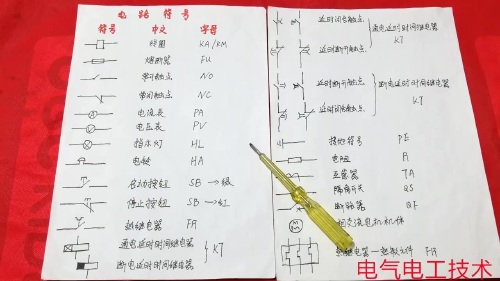 电路符号
符号 中文 字母
线圈 KA/KM
熔断器 FU
常开触点 NO
常闭触点 NC
电流表 PA
电压表 PV
指示灯 HL
电铃 HA
启动按钮 SB→绿
停止按钮 SB→红
热继电器 FR
通电延时时间继电器
断电延时时间继电器
KT
延时闭合触点
通电延时时间继电器
KT
延时断开触点
延时断开触点
断电延时时间继电器
KT
延时闭合触点
接地符号 PE
电阻 R
互感器 TA
隔离开关 QS
断路器 QF
相交流电机
热继电器 热敏元件 FR
电气电工技术